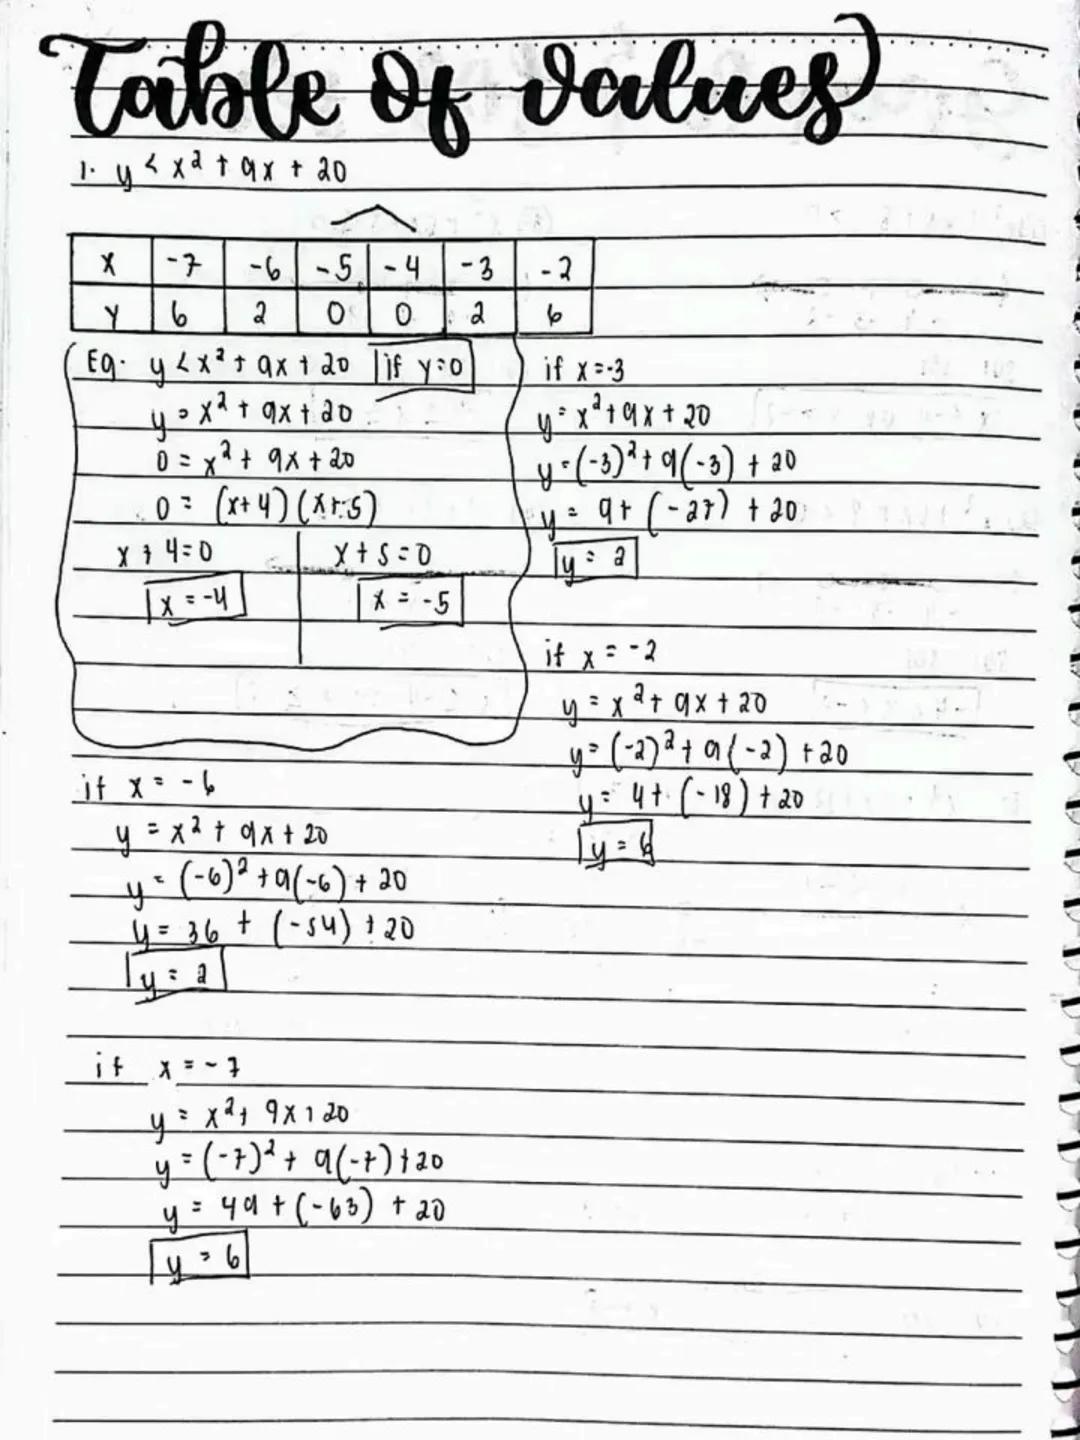 Table of values
1. y < x² + 9x + 20
x -7 -6 -5 -4 -3 -2
y 6 2 0 0 2 6
Eq. y < x² + 9x + 20 if y=0
y = x² + 9x + 20
0 = x² + 9x + 20
0 = (x+4)(x+5)
x + 4 = 0 x + 5 = 0
x = -4 x = -5
if x = -3
y = x² + 9x + 20
y = (-3)² + 9(-3) + 20
y = 9 + (-27) + 20
y = 2
if x = -2
y = x² + 9x + 20
y = (-2)² + 9(-2) + 20
y = 4 + (-18) + 20
y = 6
if x = -6
y = x² + 9x + 20
y = (-6)² + 9(-6) + 20
y = 36 + (-54) + 20
y = 2
if x = -7
y = x² + 9x + 20
y = (-7)² + 9(-7) + 20
y = 49 + (-63) + 20
y = 6